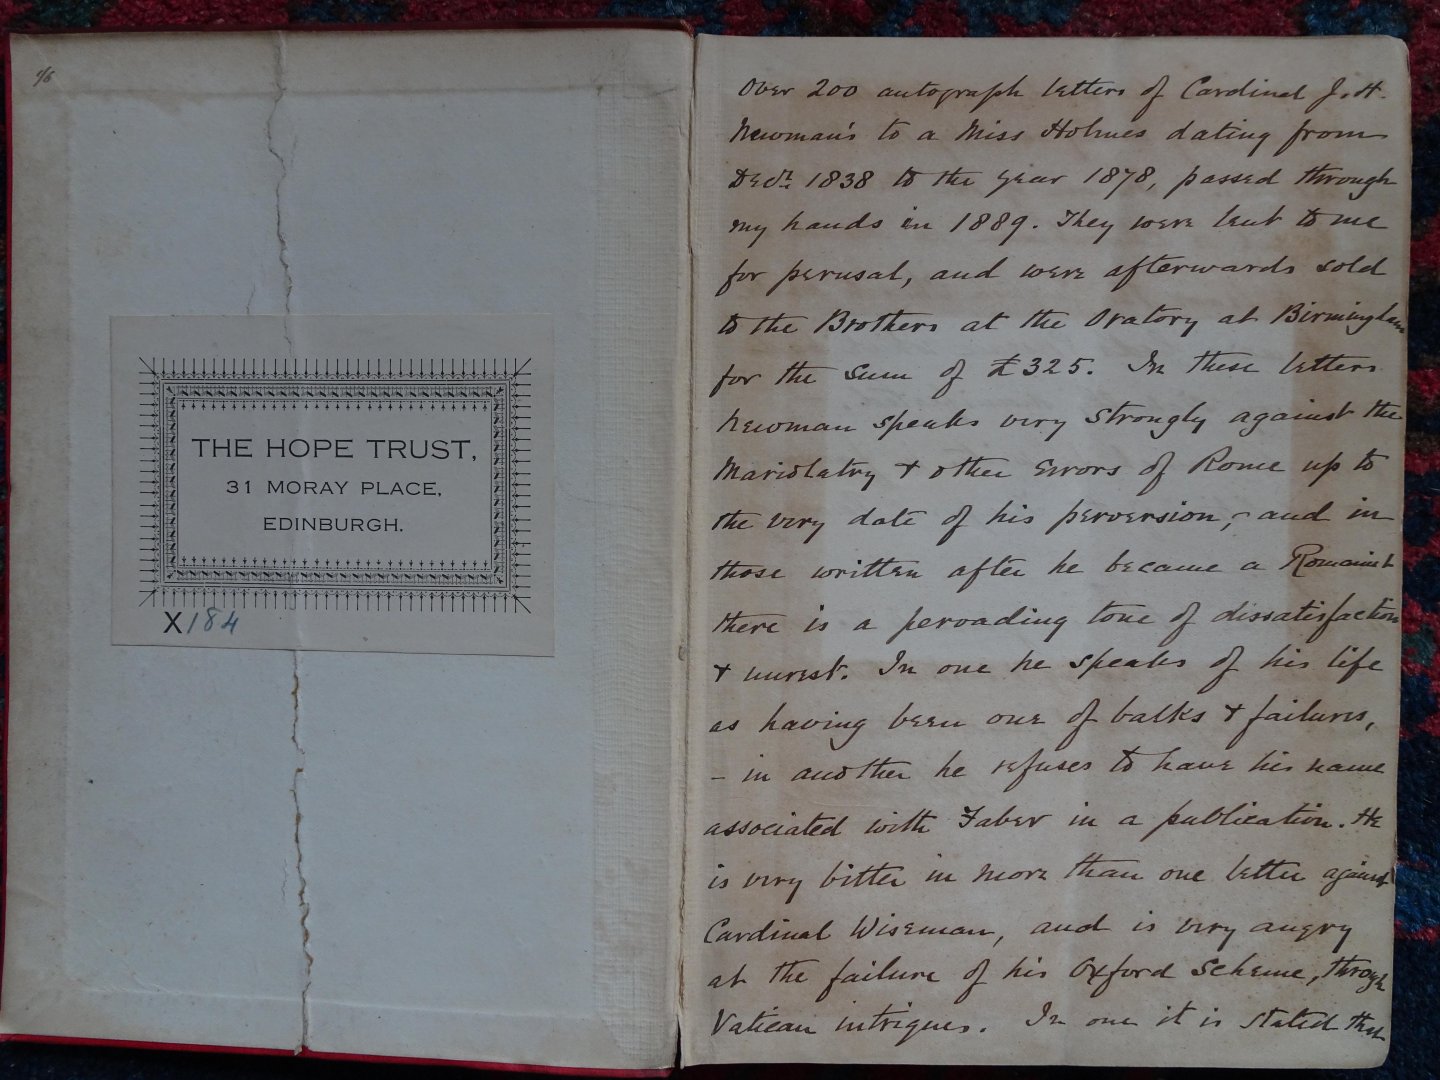 THE HOPE TRUST,
31 MORAY PLACE,
EDINBURGH.
X184
Over 200 autograph letters of Cardinal J. H.
Newman's to a Miss Holmes dating from
Decr. 1838 to the year 1878, passed through
my hands in 1889. They were lent to me
for perusal, and were afterwards sold
to the Brothers at the Oratory at Birmingham
for the sum of £325. In these letters
Newman speaks very strongly against the
Mariolatry & other Errors of Rome up to
the very date of his perversion, – and in
those written after he became a Romanist
there is a pervading tone of dissatisfaction
& unrest. In one he speaks of his life
as having been one of balks & failures,
– in another he refuses to have his name
associated with Faber in a publication. He
is very bitter in more than one letter against
Cardinal Wiseman, and is very angry
at the failure of his Oxford Scheme, through
Vatican intrigues. In one it is stated that